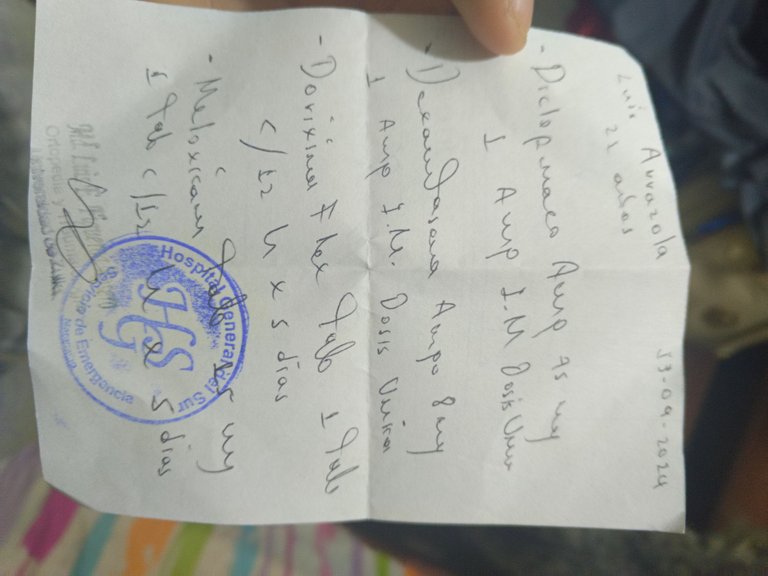 Luis Aurrazola
22 años
- Diclopmaco Amp 75 mg
1 Amp I.M Dosis Unica
- Dexametasona Ampo 8 mg
1 Amp I.M. Dosis Unica
- Dorixina Flex Tab 1 Tab
c/12 h x 5 días
- Meloxicam Tab 15 mg
1 Tab c/12 h x 5 días
Hospital General del Sur
HGS
Servicio de Emergencia